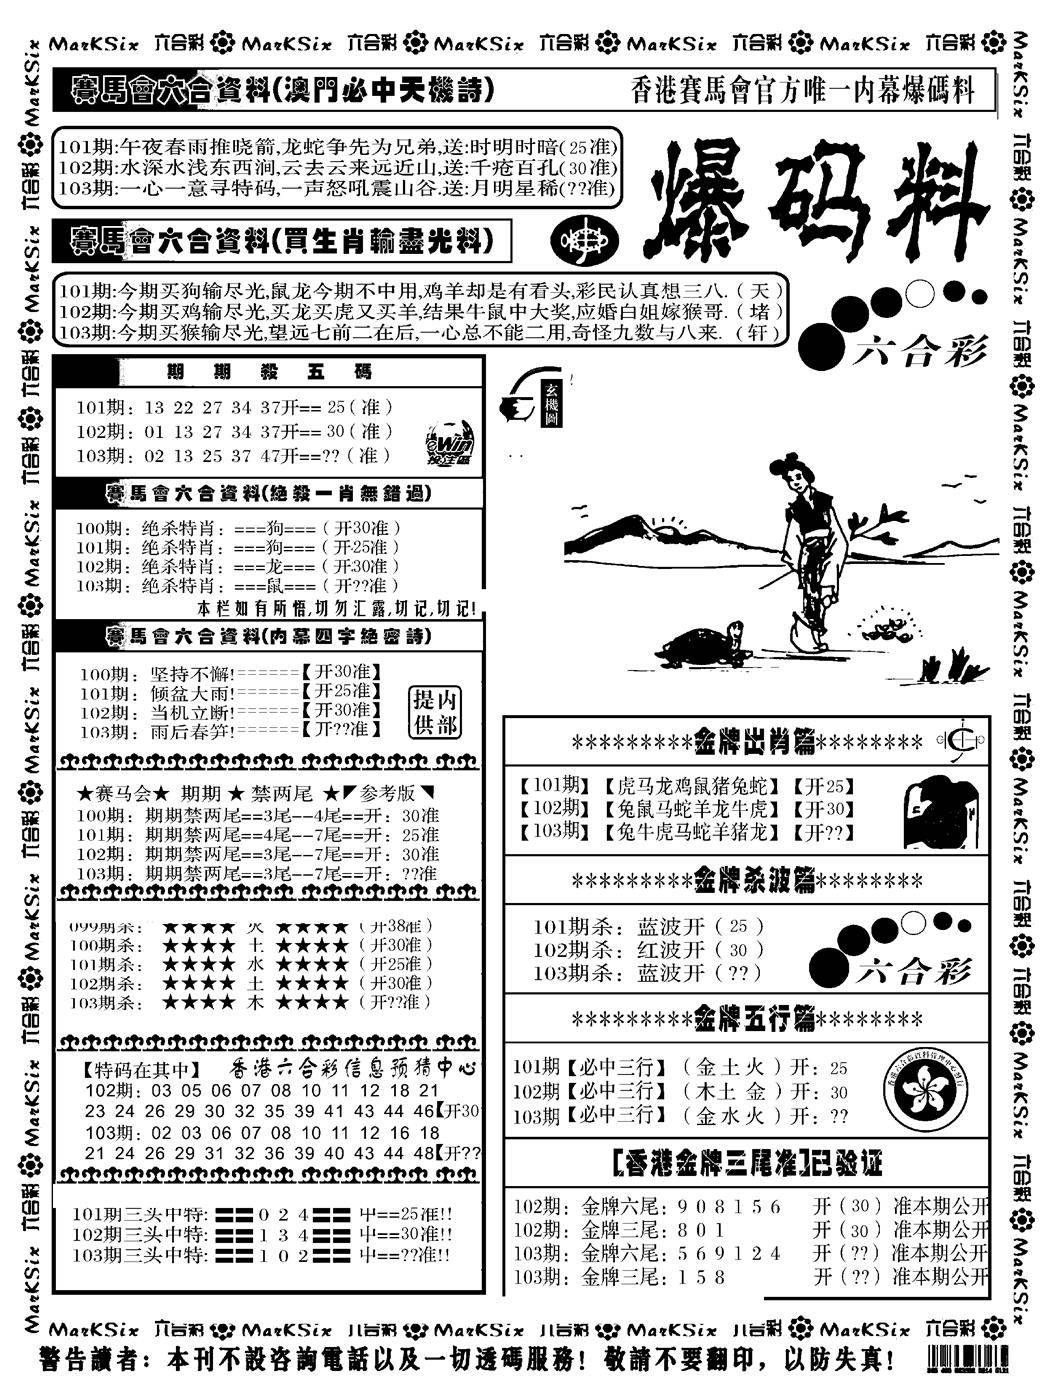 MarKSix 六合彩 MarKSix 六合彩 MarKSix 六合彩 MarKSix 六合彩 MarKSix 六合彩
賽馬會六合資料(澳門必中天機詩)
香港賽馬會官方唯一内幕爆碼料
101期:午夜春雨推晓箭,龙蛇争先为兄弟,送:时明时暗(25准)
102期:水深水浅东西涧,云去云来远近山,送:千疮百孔(30准)
103期:一心一意寻特码,一声怒吼震山谷.送:月明星稀(??准)
爆码料
賽馬會六合資料(買生肖輸盡光料)
101期:今期买狗输尽光,鼠龙今期不中用,鸡羊却是有看头,彩民认真想三八.(天)
102期:今期买鸡输尽光,买龙买虎又买羊,结果牛鼠中大奖,应婚白姐嫁猴哥.(堵)
103期:今期买猴输尽光,望远七前二在后,一心总不能二用,奇怪九数与八来.(轩)
六合彩
期期殺五碼
101期: 13 22 27 34 37开== 25(准)
102期: 01 13 27 34 37开== 30(准)
103期: 02 13 25 37 47开==??(准)
eWin
投注區
賽馬會六合資料(絕殺一肖無錯過)
100期: 绝杀特肖: ===狗===(开30准)
101期: 绝杀特肖: ===狗===(开25准)
102期: 绝杀特肖: ===龙===(开30准)
103期: 绝杀特肖: ===鼠===(开??准)
本栏如有所悟,切勿汇露,切记,切记!
賽馬會六合資料(内幕四字絕密詩)
100期: 坚持不懈!======【开30准】
101期: 倾盆大雨!======【开25准】
102期: 当机立断!======【开30准】
103期: 雨后春笋!======【开??准】
提内
供部
★赛马会★ 期期 ★ 禁两尾 ★◤参考版◥
100期: 期期禁两尾==3尾--4尾==开: 30准
101期: 期期禁两尾==4尾--7尾==开: 25准
102期: 期期禁两尾==3尾--7尾==开: 30准
103期: 期期禁两尾==3尾--7尾==开: ??准
099期杀: ★★★★ 火 ★★★★(开38准)
100期杀: ★★★★ 土 ★★★★(开30准)
101期杀: ★★★★ 水 ★★★★(开25准)
102期杀: ★★★★ 土 ★★★★(开30准)
103期杀: ★★★★ 木 ★★★★(开??准)
【特码在其中】 香港六合彩信息预猜中心
102期: 03 05 06 07 08 10 11 12 18 21
23 24 26 29 30 32 35 39 41 43 44 46【开30
103期: 02 03 06 07 08 10 11 12 16 18
21 24 26 29 31 32 36 39 40 43 44 48【开??
101期三头中特:〓〓0 2 4〓〓中==25准!!
102期三头中特:〓〓1 3 4〓〓中==30准!!
103期三头中特:〓〓1 0 2〓〓中==??准!!
玄機圖
*********金牌出肖篇********
【101期】【虎马龙鸡鼠猪兔蛇】【开25】
【102期】【兔鼠马蛇羊龙牛虎】【开30】
【103期】【兔牛虎马蛇羊猪龙】【开??】
*********金牌杀波篇********
101期杀: 蓝波开(25)
102期杀: 红波开(30)
103期杀: 蓝波开(??)
六合彩
*********金牌五行篇********
101期【必中三行】(金土火)开: 25
102期【必中三行】(木土金)开: 30
103期【必中三行】(金水火)开: ??
[香港金牌三尾准]已验证
102期: 金牌六尾: 9 0 8 1 5 6 开(30)准本期公开
102期: 金牌三尾: 8 0 1 开(30)准本期公开
103期: 金牌六尾: 5 6 9 1 2 4 开(??)准本期公开
103期: 金牌三尾: 1 5 8 开(??)准本期公开
MarKSix 六合彩 MarKSix 六合彩 MarKSix 六合彩 MarKSix 六合彩 MarKSix 六合彩
警告讀者: 本刊不設咨詢電話以及一切透碼服務! 敬請不要翻印, 以防失真!